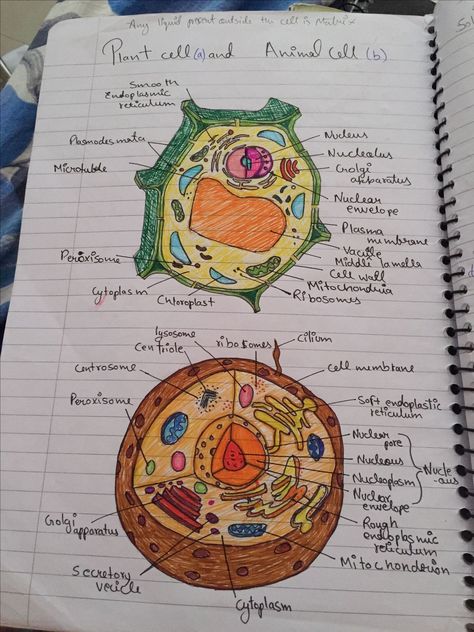 Any liquid present outside the cell is Matrix
Plant cell (a) and Animal Cell (b)
Smooth
Endoplasmic
reticulum
Plasmodesmata
Microtubule
Peroxisome
Cytoplasm
Chloroplast
Nucleus
Nucleolus
Golgi
apparatus
Nuclear
envelope
Plasma
membrane
Vacuole
Middle lamella
Cell wall
Mitochondria
Ribosomes
lysosome
Centriole
ribosomes
Cilium
Centrosome
Peroxisome
Cell membrane
Soft endoplastic
reticulum
Nuclear
pore
Nucleous
Nucleoplasm
Nuclear
envelope
Nucle
-aus
Rough
endoplasmic
reticulum
Mitochondrion
Golgi
apparatus
Secretory
vericle
Cytoplasm